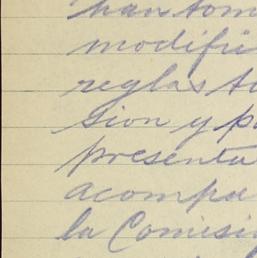 han tom
modifi
reglas to
sion y p
presenta
acompa
la Comisi